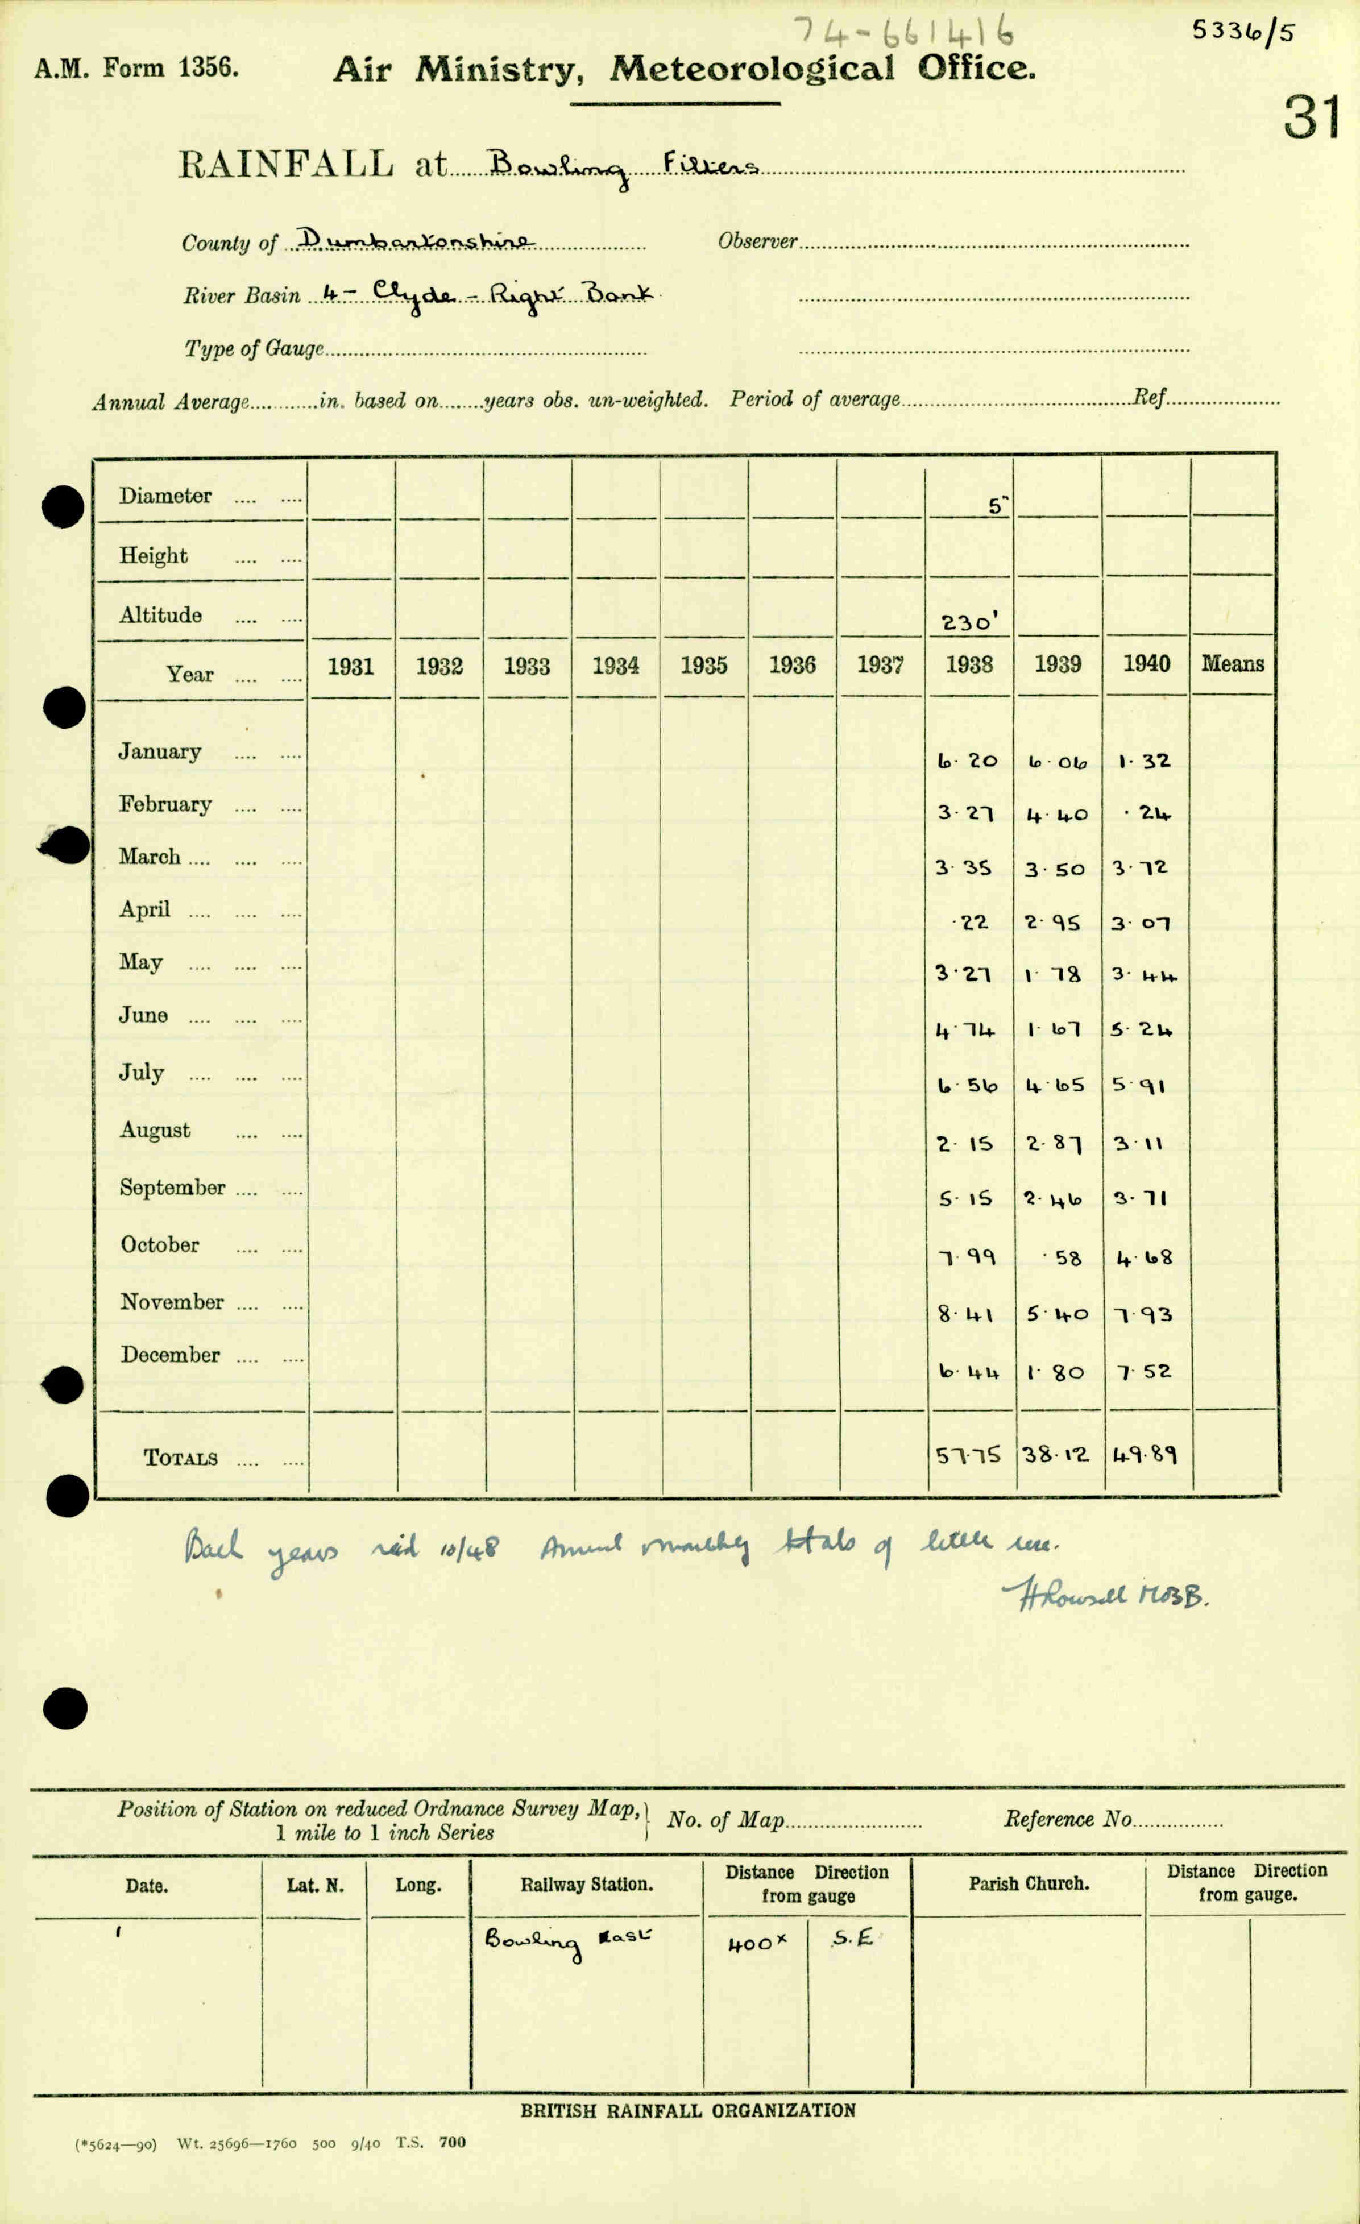 74-661416
5336/5
A.M. Form 1356. Air Ministry, Meteorological Office.
31
RAINFALL at Bowling Filters
County of Dumbartonshire Observer
River Basin 4 - Clyde - Right Bank
Type of Gauge
Annual Average in. based on years obs. un-weighted. Period of average Ref
Diameter 5"
Height
Altitude 230'
Year 1931 1932 1933 1934 1935 1936 1937 1938 1939 1940 Means
January 6.20 6.06 1.32
February 3.27 4.40 .24
March 3.35 3.50 3.72
April .22 2.95 3.07
May 3.27 1.78 3.44
June 4.74 1.67 5.24
July 6.56 4.65 5.91
August 2.15 2.87 3.11
September 5.15 2.46 3.71
October 7.99 .58 4.68
November 8.41 5.40 7.93
December 6.44 1.80 7.52
TOTALS 57.75 38.12 49.89
Back years 10/48 monthly totals of little use.
Position of Station on reduced Ordnance Survey Map, No. of Map Reference No
1 mile to 1 inch Series
Date. Lat. N. Long. Railway Station. Distance Direction from gauge Parish Church. Distance Direction from gauge.
Bowling East 400x S.E
BRITISH RAINFALL ORGANIZATION
(*5624—90) Wt. 25696—1760 500 9/40 T.S. 700